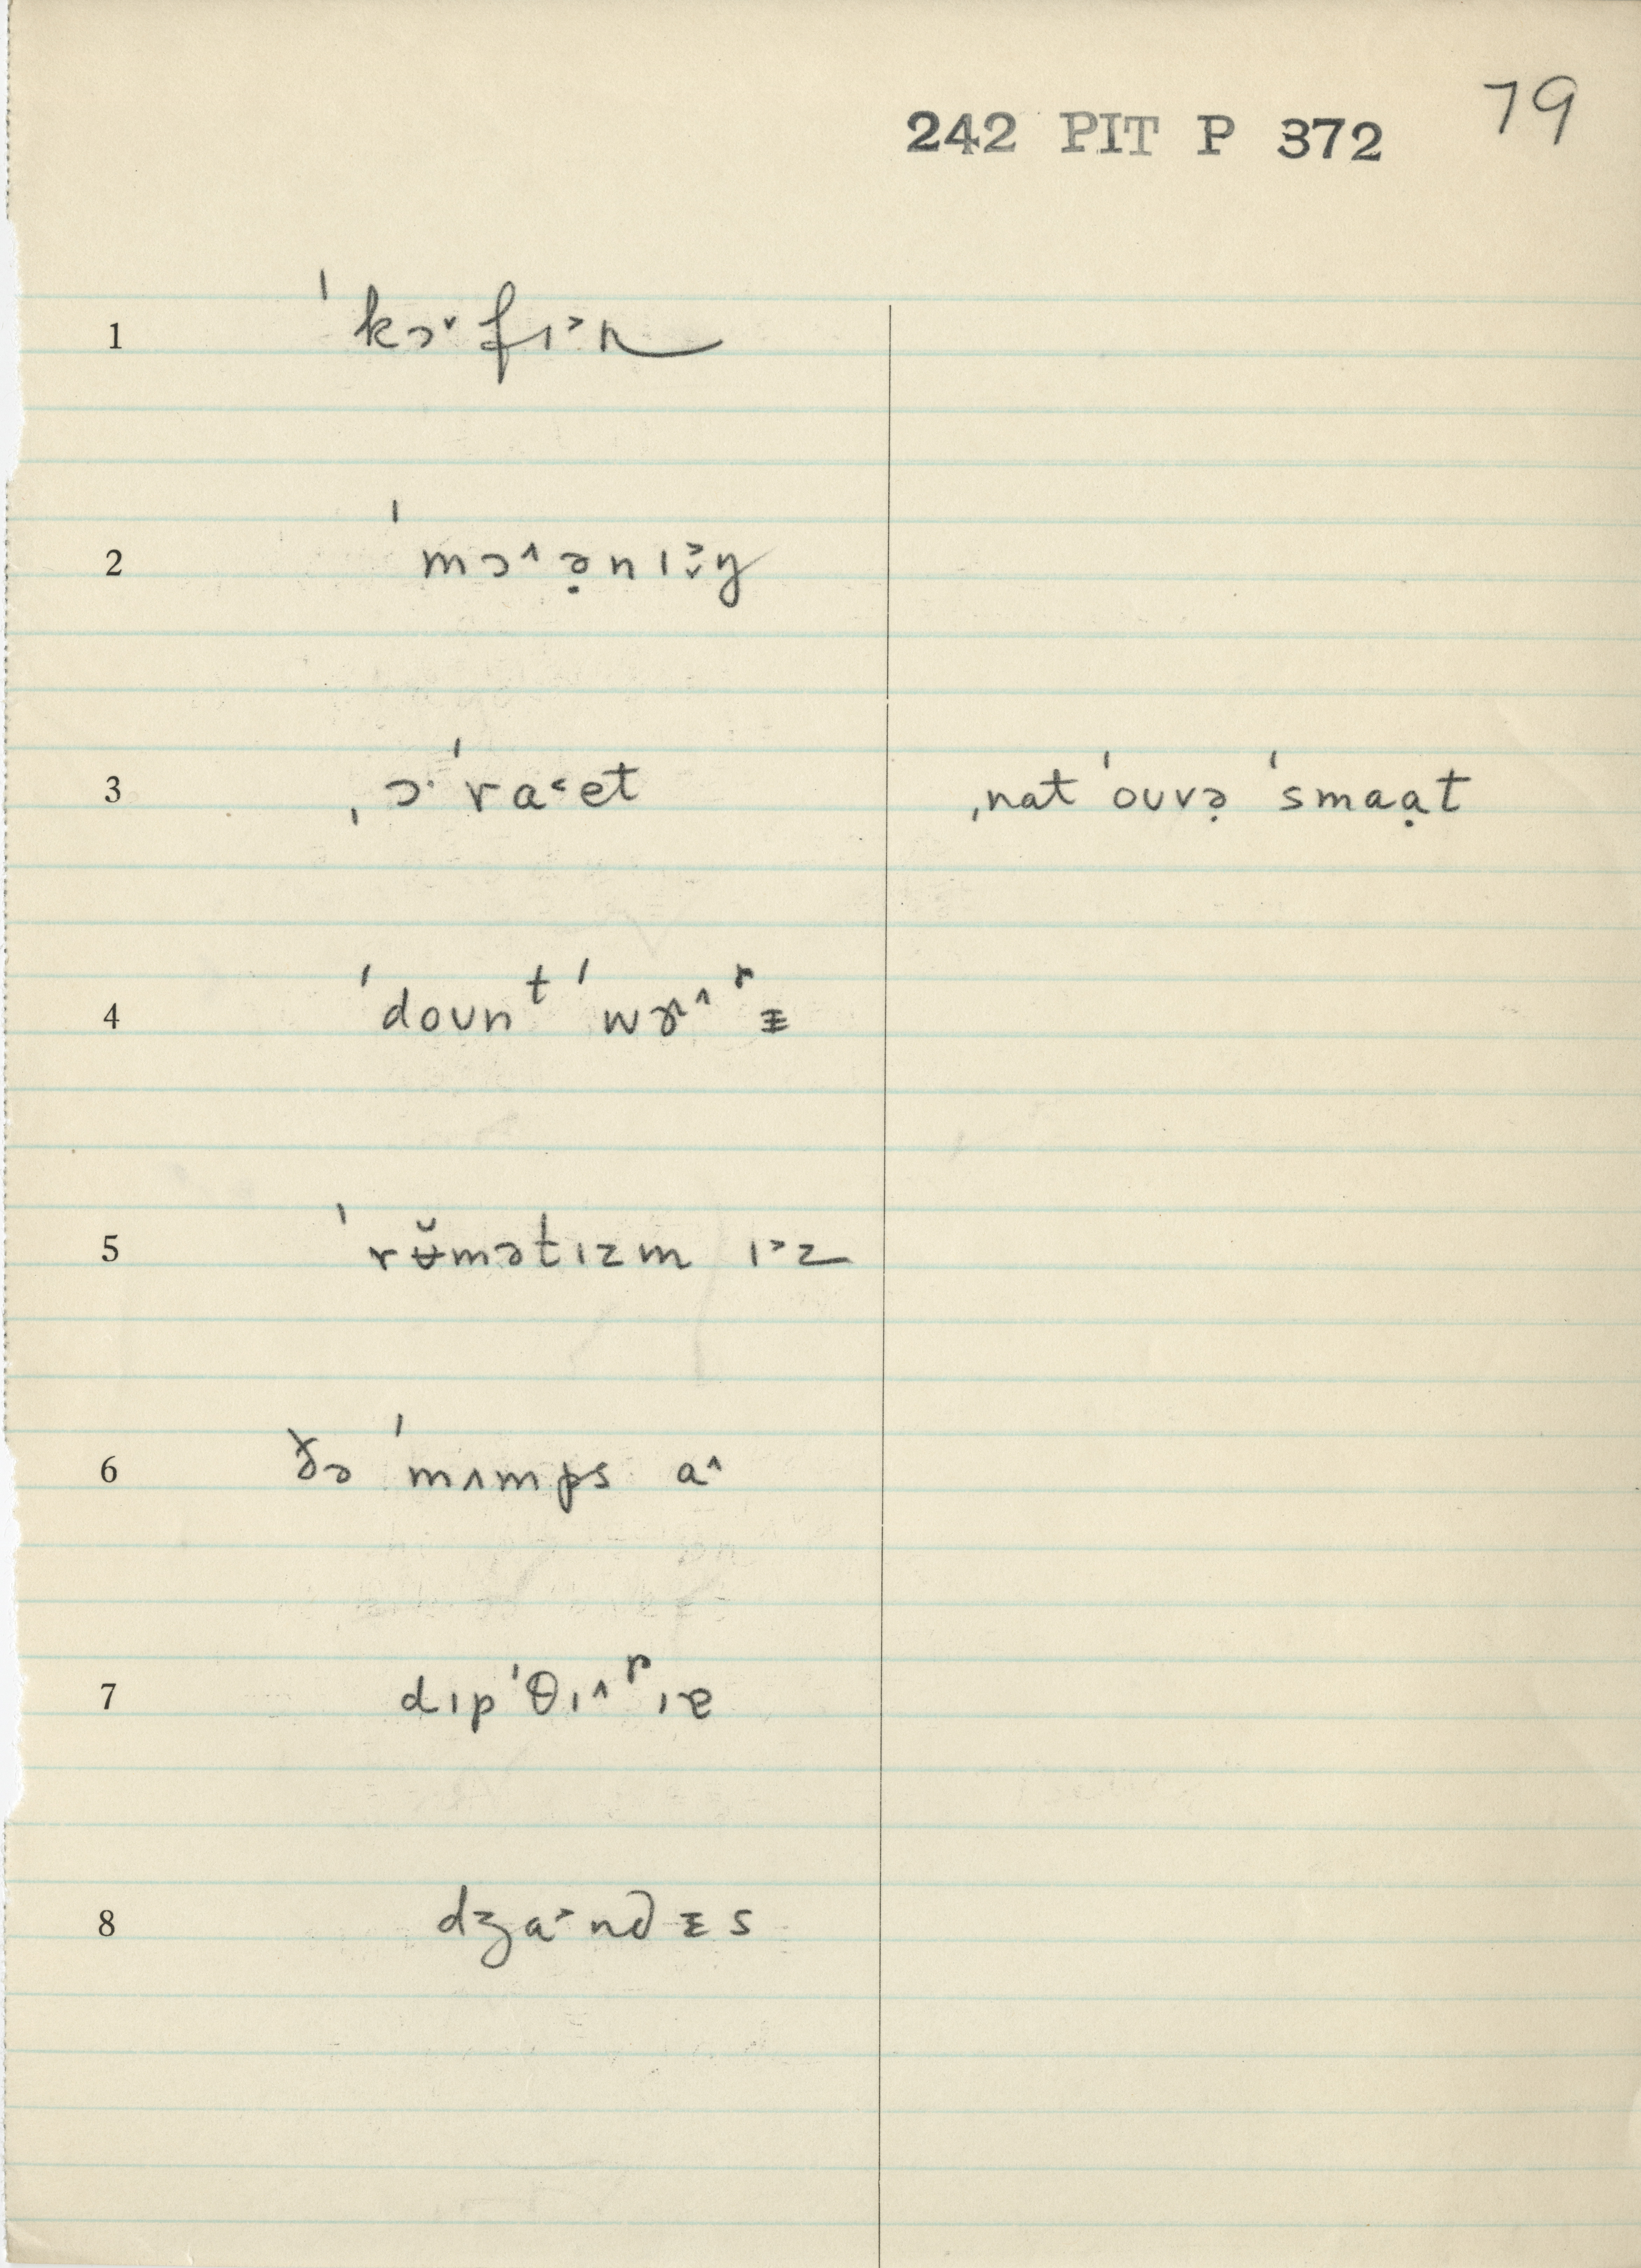 242 PIT P 372 79
1 ˈkɔ˅fɪ˃n
2 ˈmɔ˄ə̣nɪ˃˅ŋ
3 ˌɔ·ˈra˂et ˌnatˈouvə̣ ˈsmaạt
4 ˈdoʊnᵗ ˈwɝ˄ʳɨ
5 ˈrʉ̆mətɪzm ɪ˃z
6 ðə ˈmʌmps a˄
7 dɪpˈθɪ˄ʳɪɐ
8 dʒa˃ndɨs